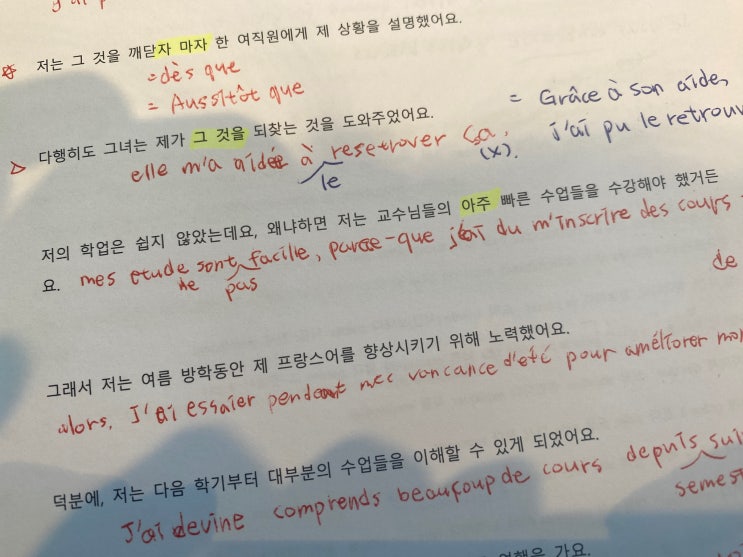 저는 그 것을 깨닫자 마자 한 여직원에게 제 상황을 설명했어요.
= dès que
= Aussitôt que
= Grâce à son aide,
다행히도 그녀는 제가 그 것을 되찾는 것을 도와주었어요.
j'ai pu le retrouv
elle m'a aidée à resetrover ça.
(x).
le
저의 학업은 쉽지 않았는데요, 왜냐하면 저는 교수님들의 아주 빠른 수업들을 수강해야 했거든
요. mes etude sont facille, parce-que j'ai du m'inscrire des cours
ne pas
de
그래서 저는 여름 방학동안 제 프랑스어를 향상시키기 위해 노력했어요.
alors, J'ai essaier pendant mec voncance d'été pour améliorer mon
덕분에, 저는 다음 학기부터 대부분의 수업들을 이해할 수 있게 되었어요.
J'ai devine comprends beaufoup de cours depuis sui
semest
여행을 가요.